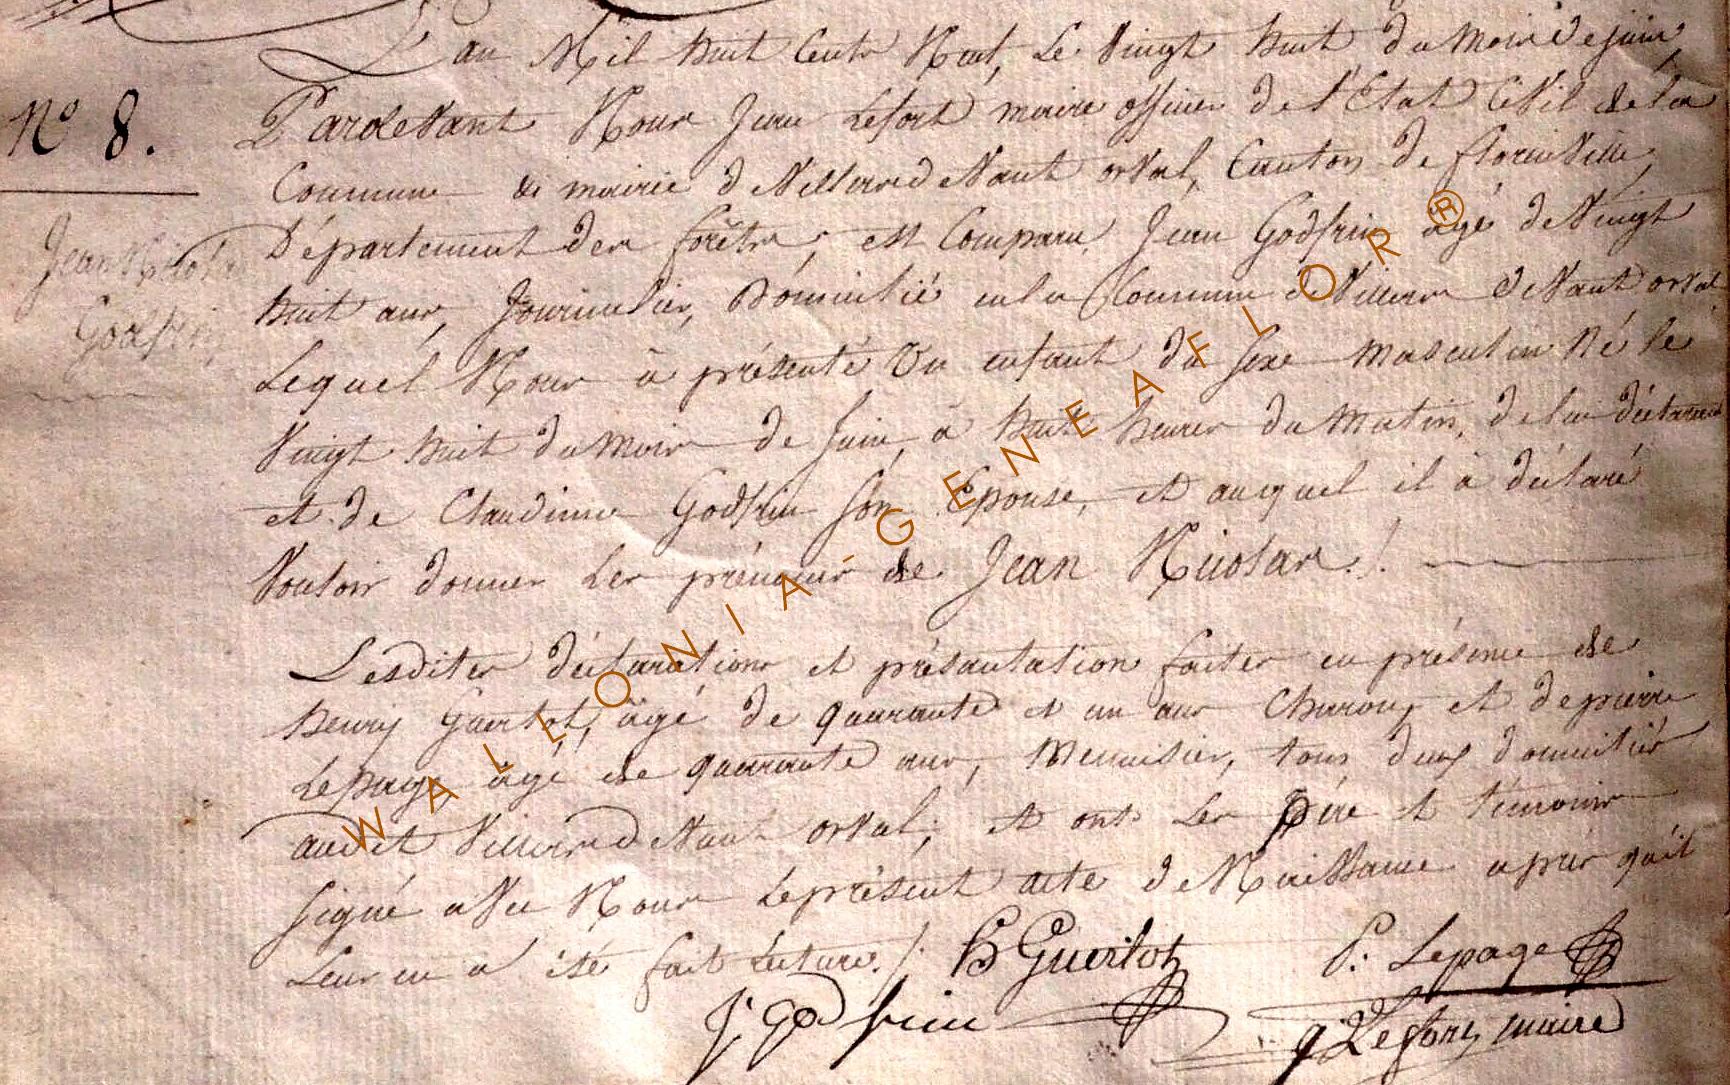 L'an Mil huit Cents Neuf, Le Vingt huit du Mois de juin,
N° 8.
Pardevant Nous Jean Lefort maire officier de l'Etat Civil de la
Commune & mairie de Villers devant orval, Canton de florenville,
Département des forêts, est Comparu Jean Godfrin âgé de Vingt
Jean Nicolas
Godfrin
huit ans, Journalier, Domicilié en la Commune de Villers devant orval
Lequel Nous à présenté Un enfant du sexe masculin Né le
Vingt huit du Mois de Juin, à huit heures du Matin, de lui déclarant
et de Claudine Godfrin son Epouse, et auquel il à déclaré
Vouloir donner Les prénoms de Jean Nicolas./.
Lesdites déclarations et présantation faites en présence de
henry Guerlot, âgé de quarante et un ans Charon, et de pierre
Lepage, âgé de quarante ans, Menuisier, tous deux domiciliés
audit Villers devant orval, et ont Les Père et témoins
signé avec Nous Le présent acte de Naissance après qu'il
Leur en a été fait Lecture./.
H Guerlot
P. Lepage
J. godfrin
J Lefort, maire
WALLONIA-GENEAFLOR®